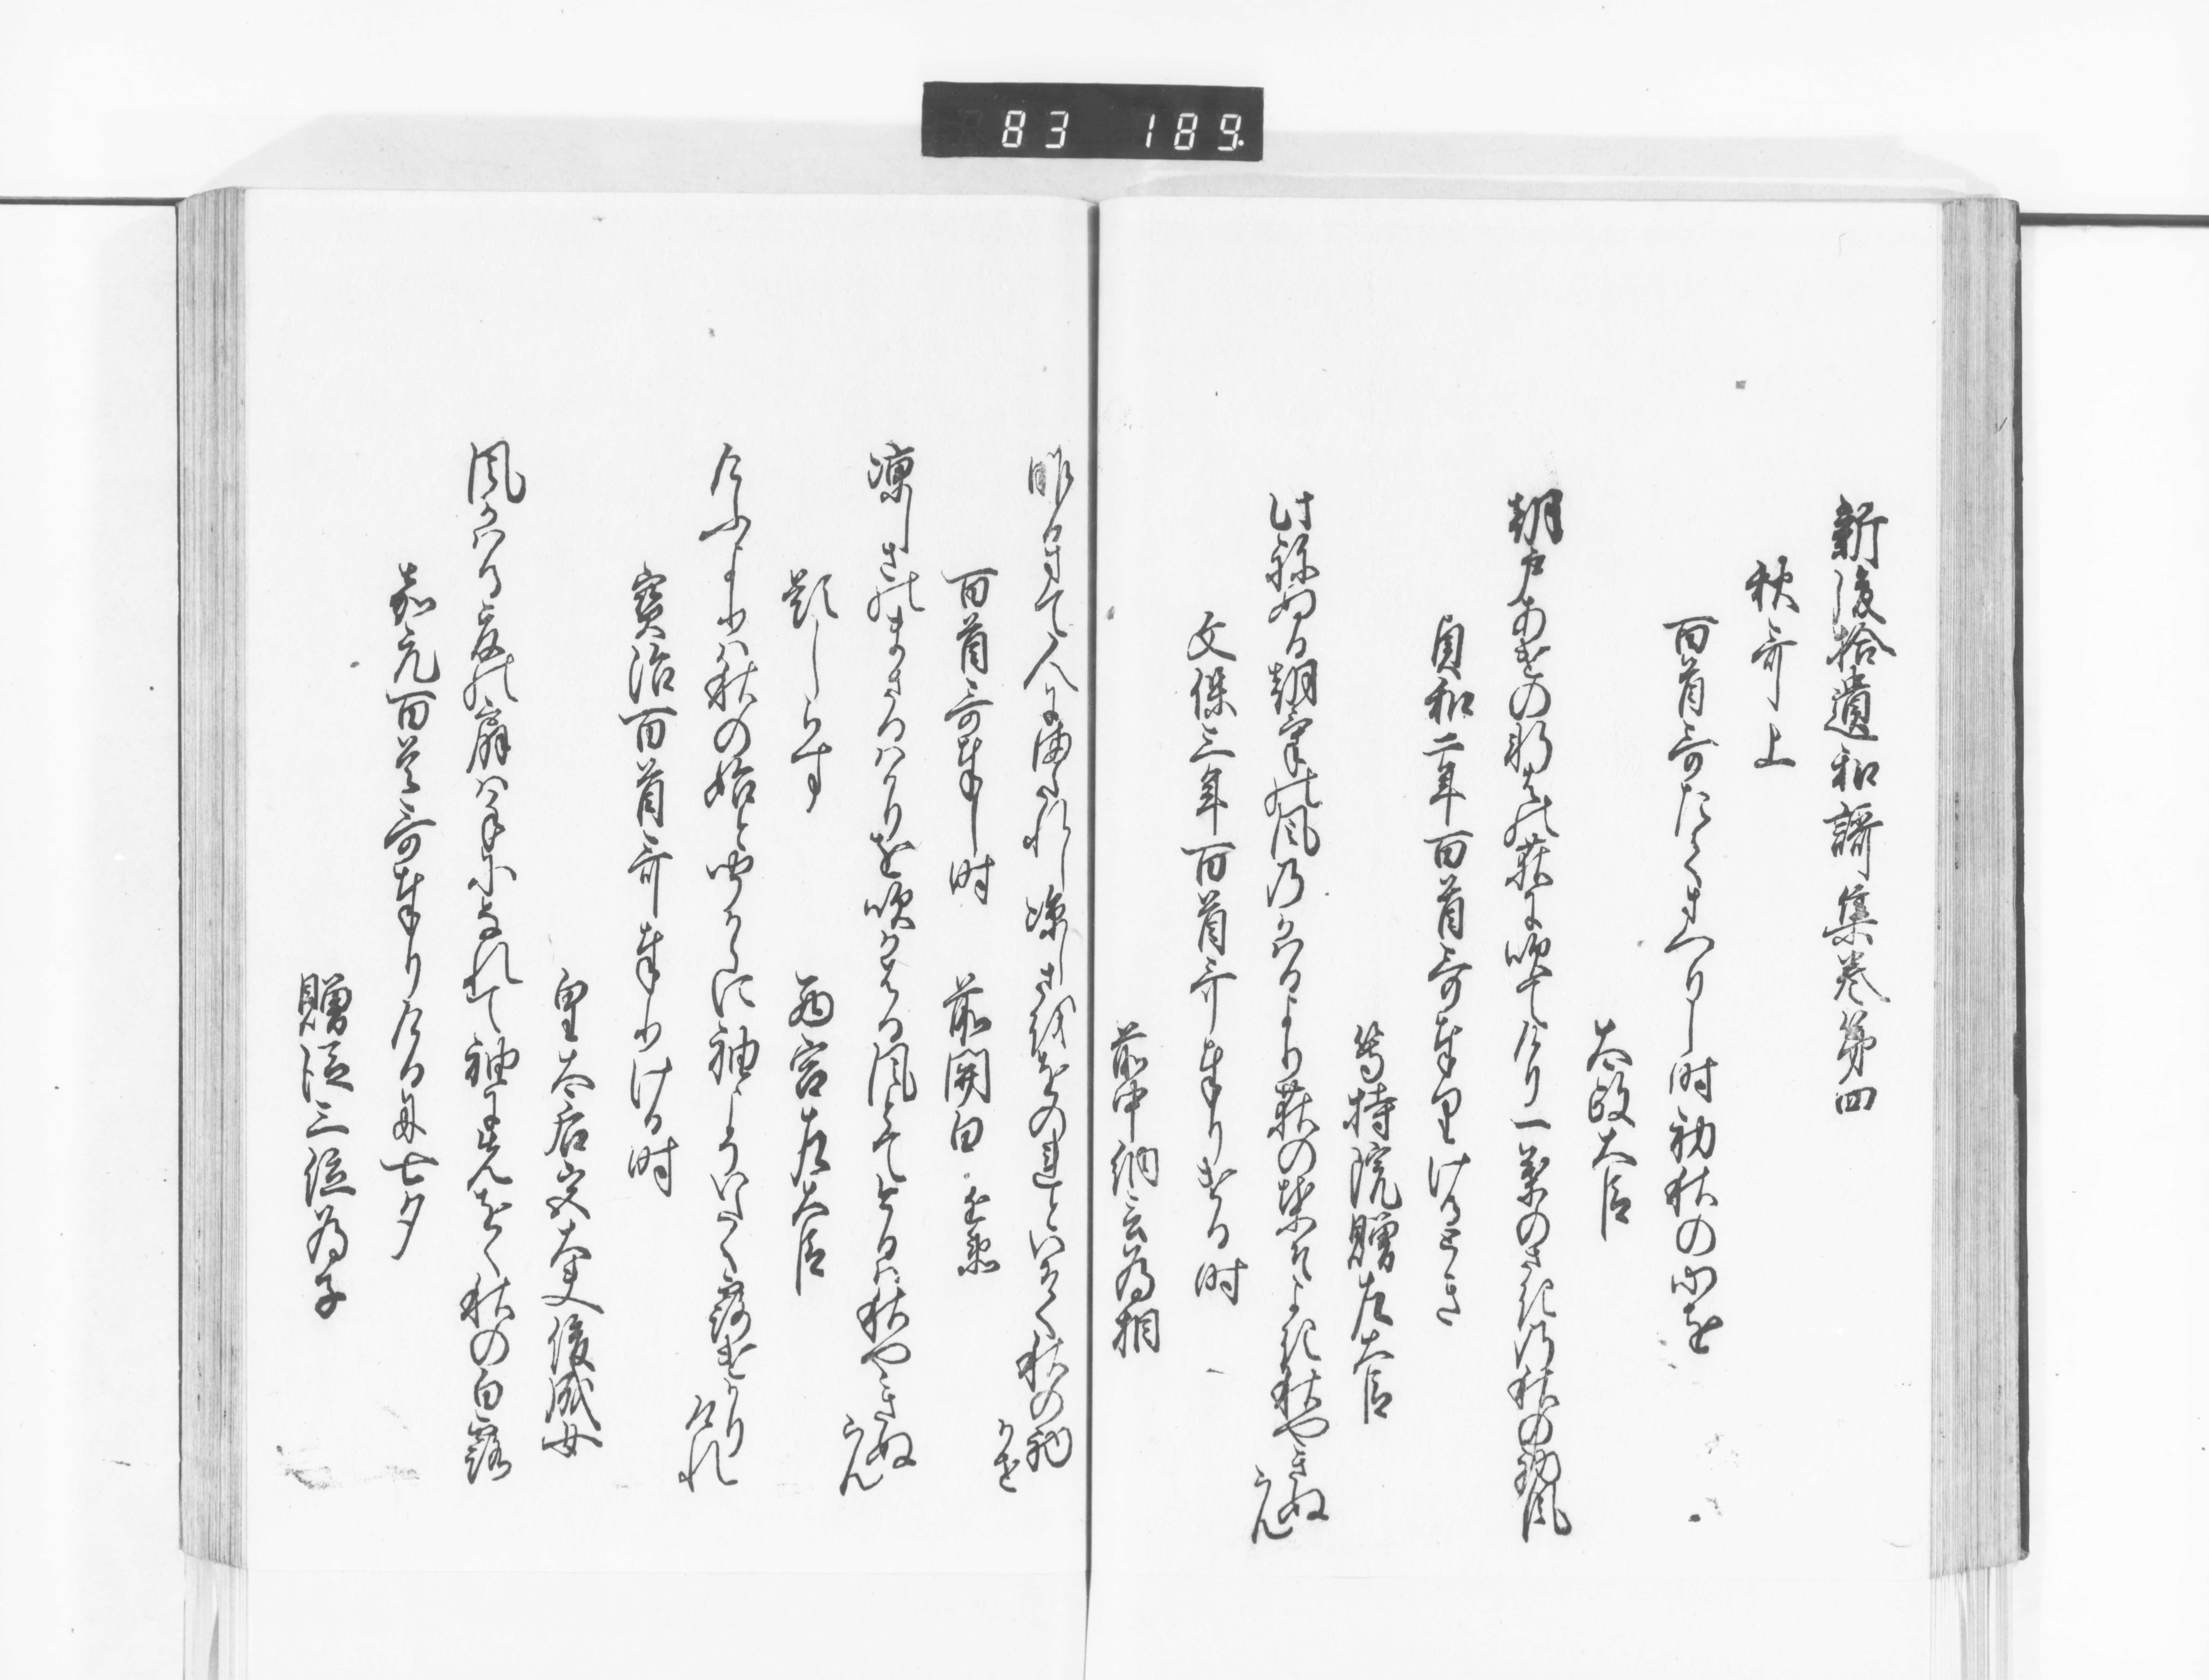 83 189
新後拾遺和謌集巻第四
秋哥上
百首哥たてまつりし時初秋の心を
太政大臣
朝戸あけの軒はの荻に吹てけり一葉のさきの秋の初風
貞和二年百首哥奉りけるとき
等持院贈左大臣
此ねぬる朝けの風のかはるより荻の葉そよき秋やきぬらん
文保三年百首哥奉りける時
前中納言為相
昨日まて人にまたれし涼しさをおのれといそく秋の初かせ
百首哥奉し時 前関白
涼しさのまさるはかりを吹かはる風とてけさは秋やきぬらん
題しらす 西宮左大臣
けふよりは秋の始と聞からに袖こそいたく露けかりけれ
寳治百首哥奉りける時
皇太后宮大夫俊成女
風かはる夏の扇は手になれて袖にまつをく秋の白露
嘉元百首哥奉りける時七夕
贈従三位為子